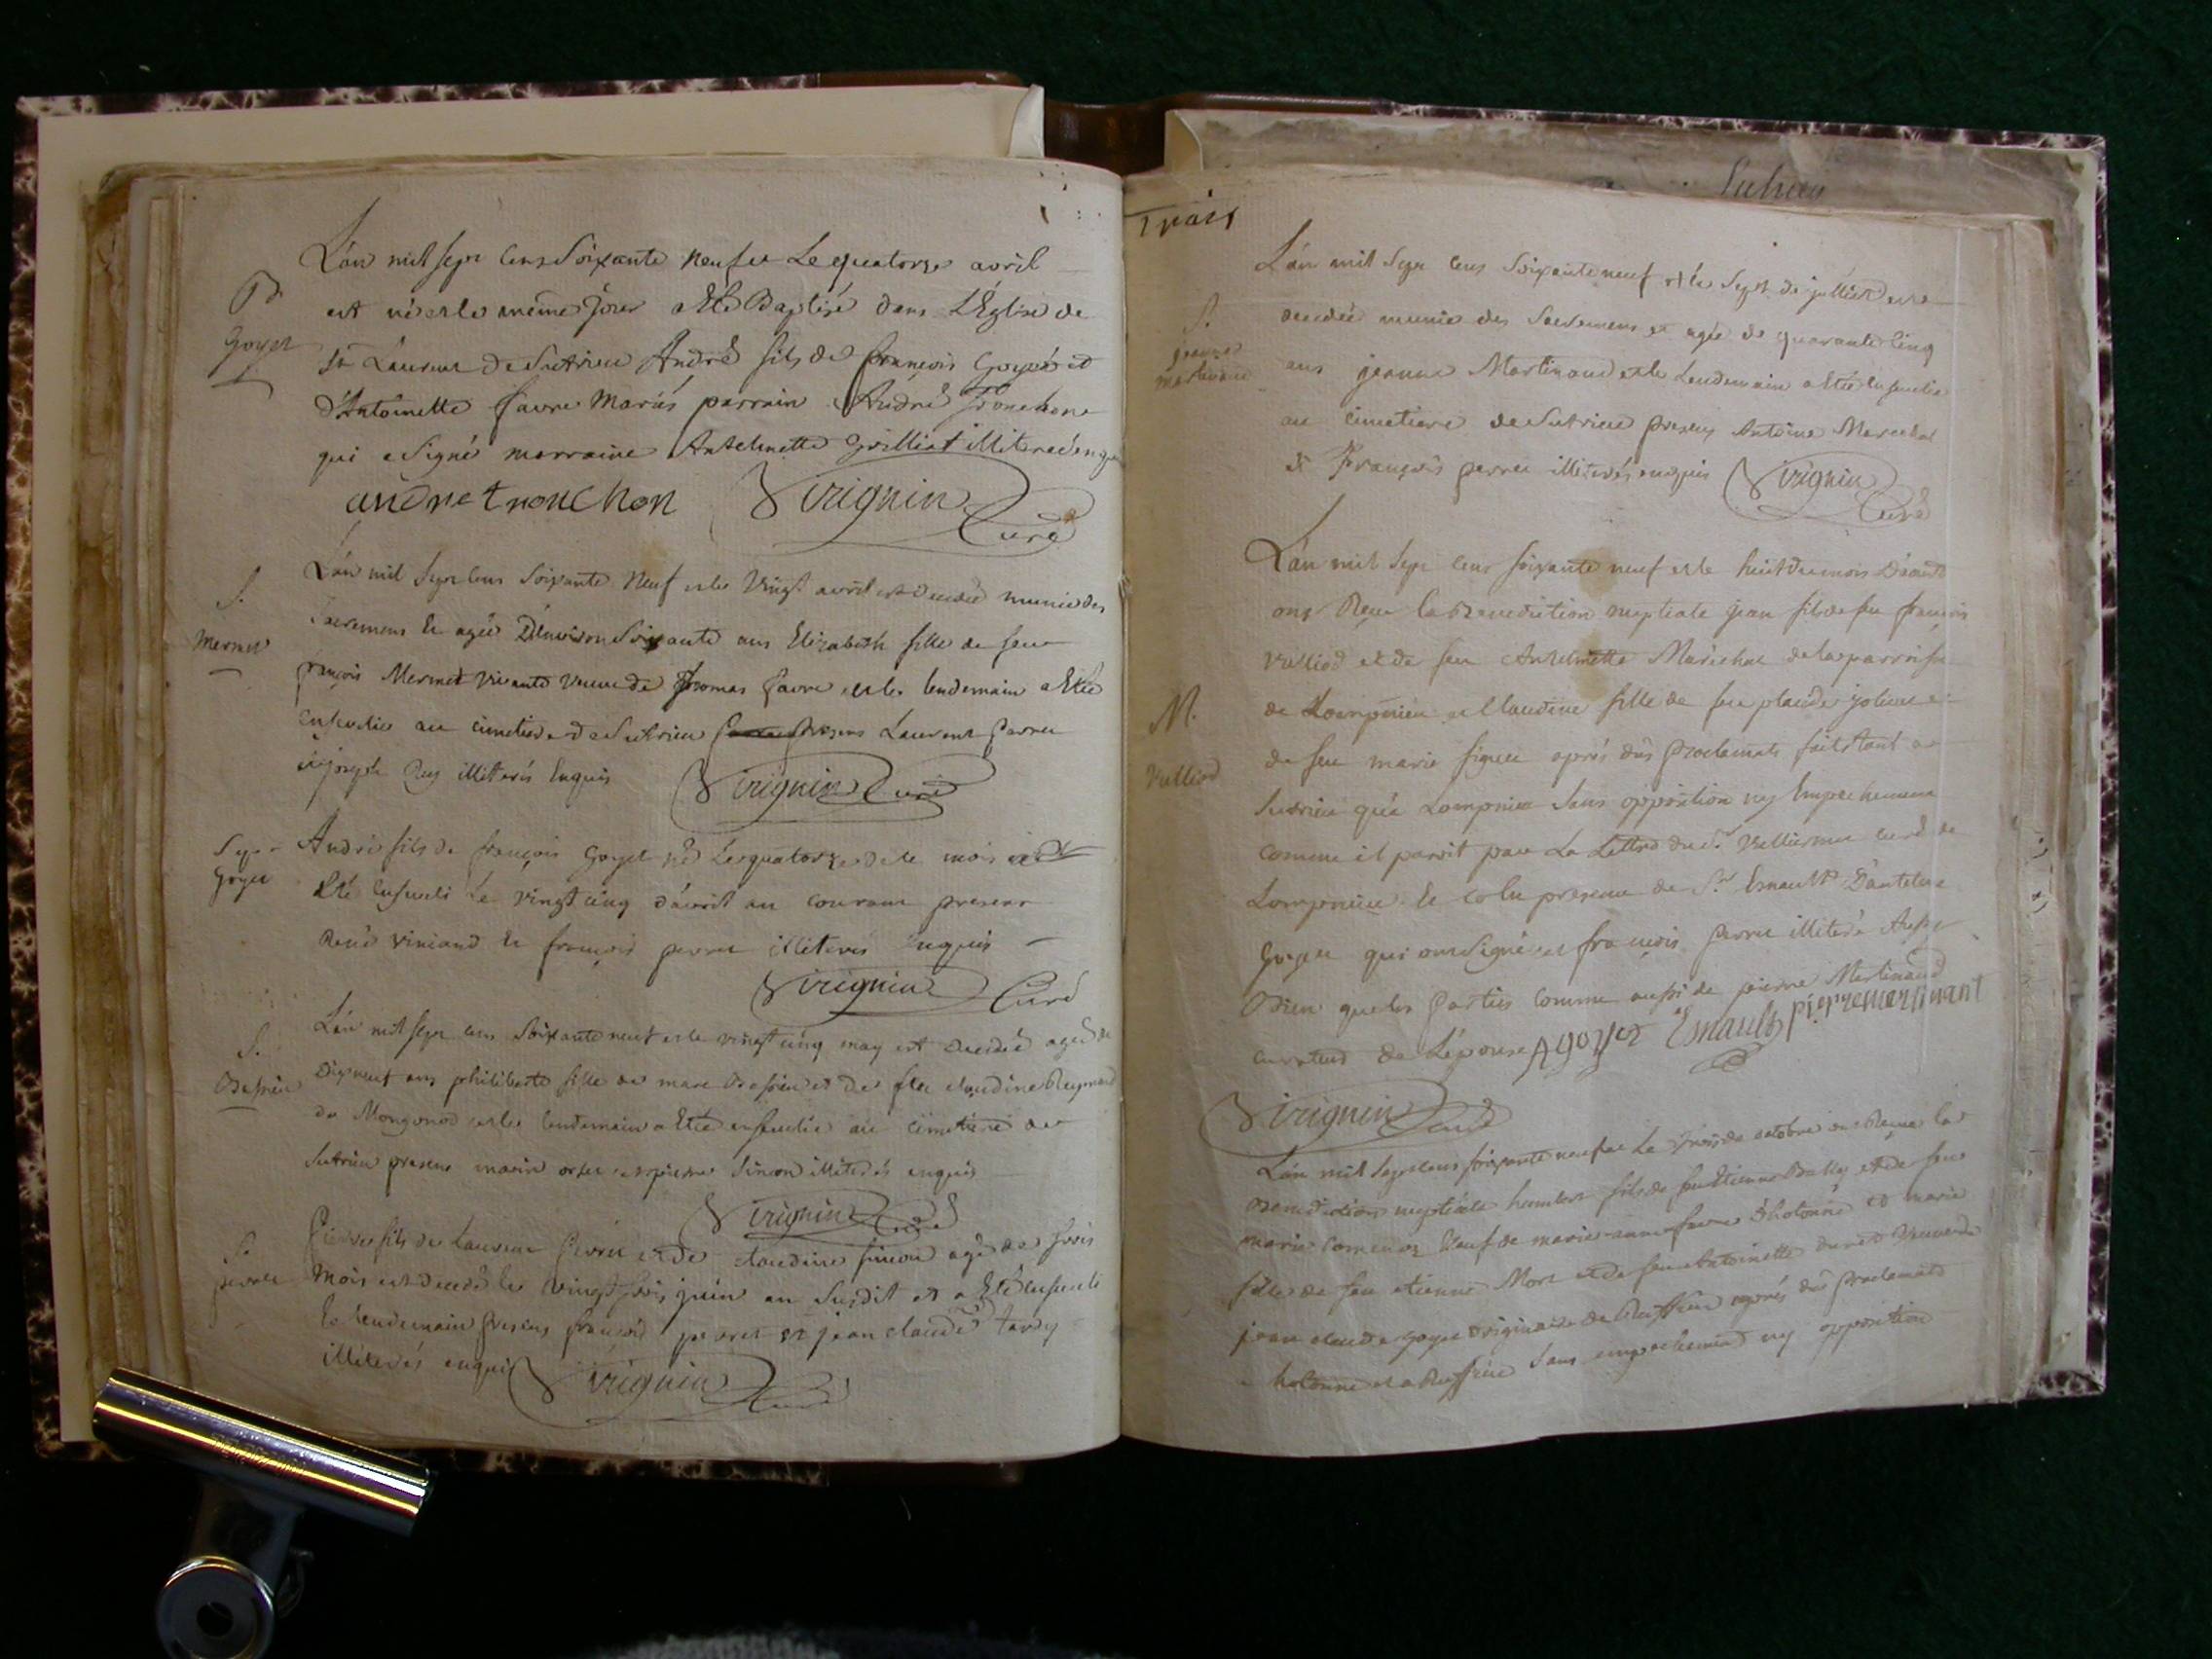 L'an mil sept cens Soixante neuf et Le quatorze avril
B.
est né et le même jour a Eté Baptisé dans L'Eglise de
Goyet
St Laurent de Sutrieu André fils de françois Goyet et
d'Antoinette favre Mariés parrain André Tronchon
qui a Signé marraine Anthelmette Grilliat illiterée enquise
andre tronchon Virignin Curé
L'an mil Sept cens Soixante Neuf et le Vingt avril est decedée munie des
S.
Sacremens et agée D'environ Soixante ans Elizabeth fille de feu
Mermet
françois Mermet vivante veuve de Thomas favre et le lendemain a Eté
ensevelie au cimetiere de Sutrieu presens Laurent Perret
et joseph Rey illiterés Enquis Virignin Curé
Sep.
Goyet
André fils de françois Goyet né Le quatorze de ce mois
Eté ensevelis Le vingt cinq d'avril an courant presens
René Viniand et françois perret illiterés Enquis
Virignin Curé
L'an mil sept cens Soixante neuf et le vingt cinq may est decedée agée de
S.
dixneuf ans philiberte fille de marc et de feu claudine Reymond
de Mongonod et le lendemain a Eté ensevelie au cimetiere de
Sutrieu presens marin et pierre Simon illiterés enquis
Virignin Curé
S.
Pierre fils de Laurent Perret et de claudine simon agé de trois
perret
mois est decedé le vingt trois juin an Susdit et a Eté enseveli
le lendemain presens françois perret et jean claude tardy
illiterés enquis Virignin Curé
Trois
L'an mil Sept cens Soixante neuf et le Sept de juillet est
S.
decedée munie des Sacremens et agée de quarante cinq
jeanne
martinand
ans jeanne Martinand et le Lendemain a Eté ensevelie
au cimetiere de Sutrieu presens Antoine Marechal
et François perret illiterés enquis Virignin
Curé
L'an mil Sept cens soixante neuf et le huit du mois D'aoust
ont Reçu la Benediction nuptiale jean fils de feu françois
Vulliod et de feu Anthelmette Maréchal de la parroisse
M.
de Lompnieu et Claudine fille de feu claude et
Vulliod
de feu marie après dûs Proclamats faits tant a
Sutrieu qu'a Lompnieu Sans opposition ny Empechement
comme il paroit par La Lettre du Sr curé de
Lompnieu Et ce en presence de Sr Esnault D'antelme
Goyet qui ont Signé et françois Perret illiteré
Bien que les Parties Comme aussi de pierre Martinand
curateur de L'épouse A goyet Esnault pierre martinant
Virignin Curé
L'an mil Sept cens soixante neuf et Le trois de octobre ont Reçu la
Benediction nuptiale humbert fils de feu Etienne Bally et de feue
marie veuf de marie anne favre d'hotonne et marie
fille de feu etienne Mort et de feu Antoinette veuve de
jean claude goyet originaire de Ruffieu après dûs Proclamats
hotonne et a Ruffieu Sans empechement ny opposition